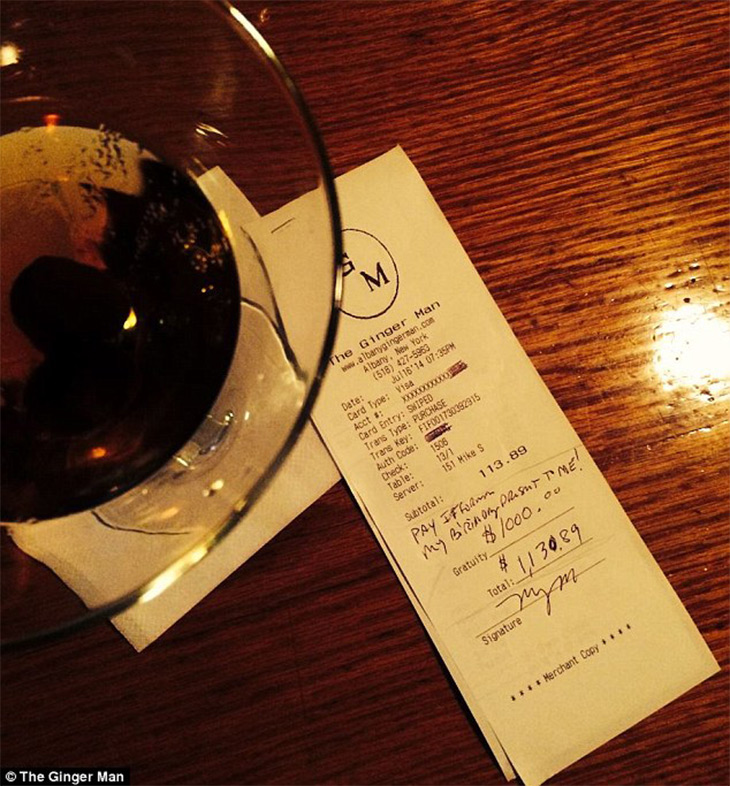 G M
The Ginger Man
www.albanygingerman.com
Albany, New York
(518) 427-5963
Date: Jul16'14 07:35PM
Card Type: Visa
Acct #: XXXXXXXXXXX
Card Entry: SWIPED
Trans Type: PURCHASE
Trans Key: FIF001730392915
Auth Code:
Check: 1508
Table: 13/1
Server: 151 Mike S
Subtotal: 113.89
PAY IT FORWARD
MY BIRTHDAY PRESENT TO ME!
Gratuity $1000.00
Total: $1,130.89
Signature
**** Merchant Copy ****
© The Ginger Man